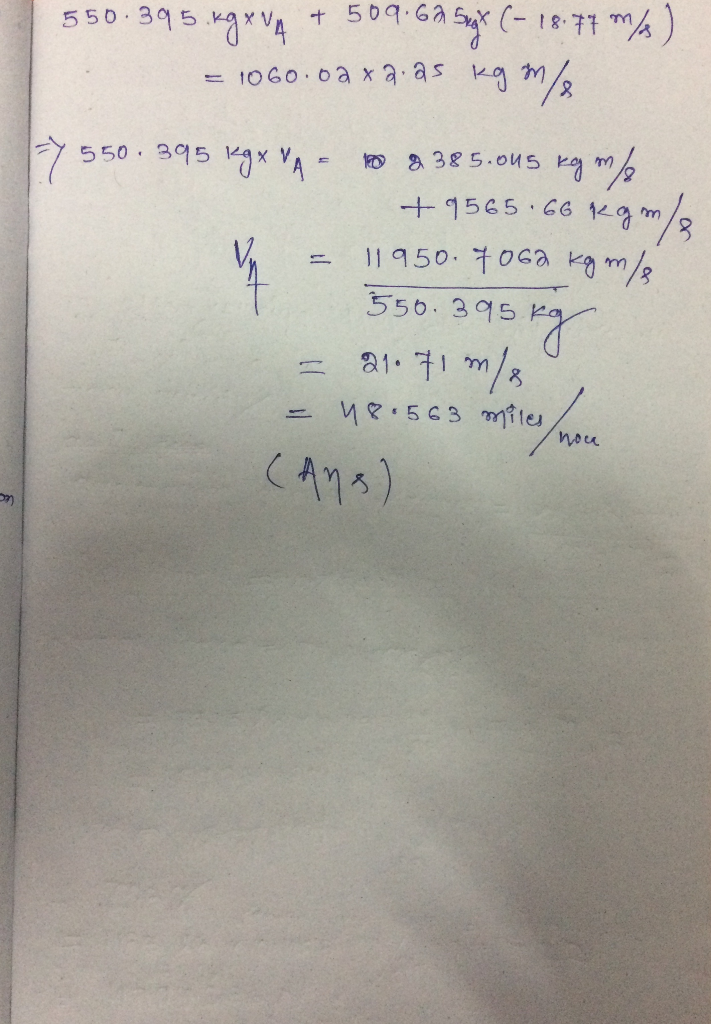 550.395 kg x VA + 509.625 kg x (- 18.77 m/s)
= 1060.02 x 2.25 kg m/s
=> 550.395 kg x VA = 2385.045 kg m/s
+ 9565.66 kg m/s
VA = 11950.7062 kg m/s
550.395 kg
= 21.71 m/s
= 48.563 miles/hour
(Ans)
on